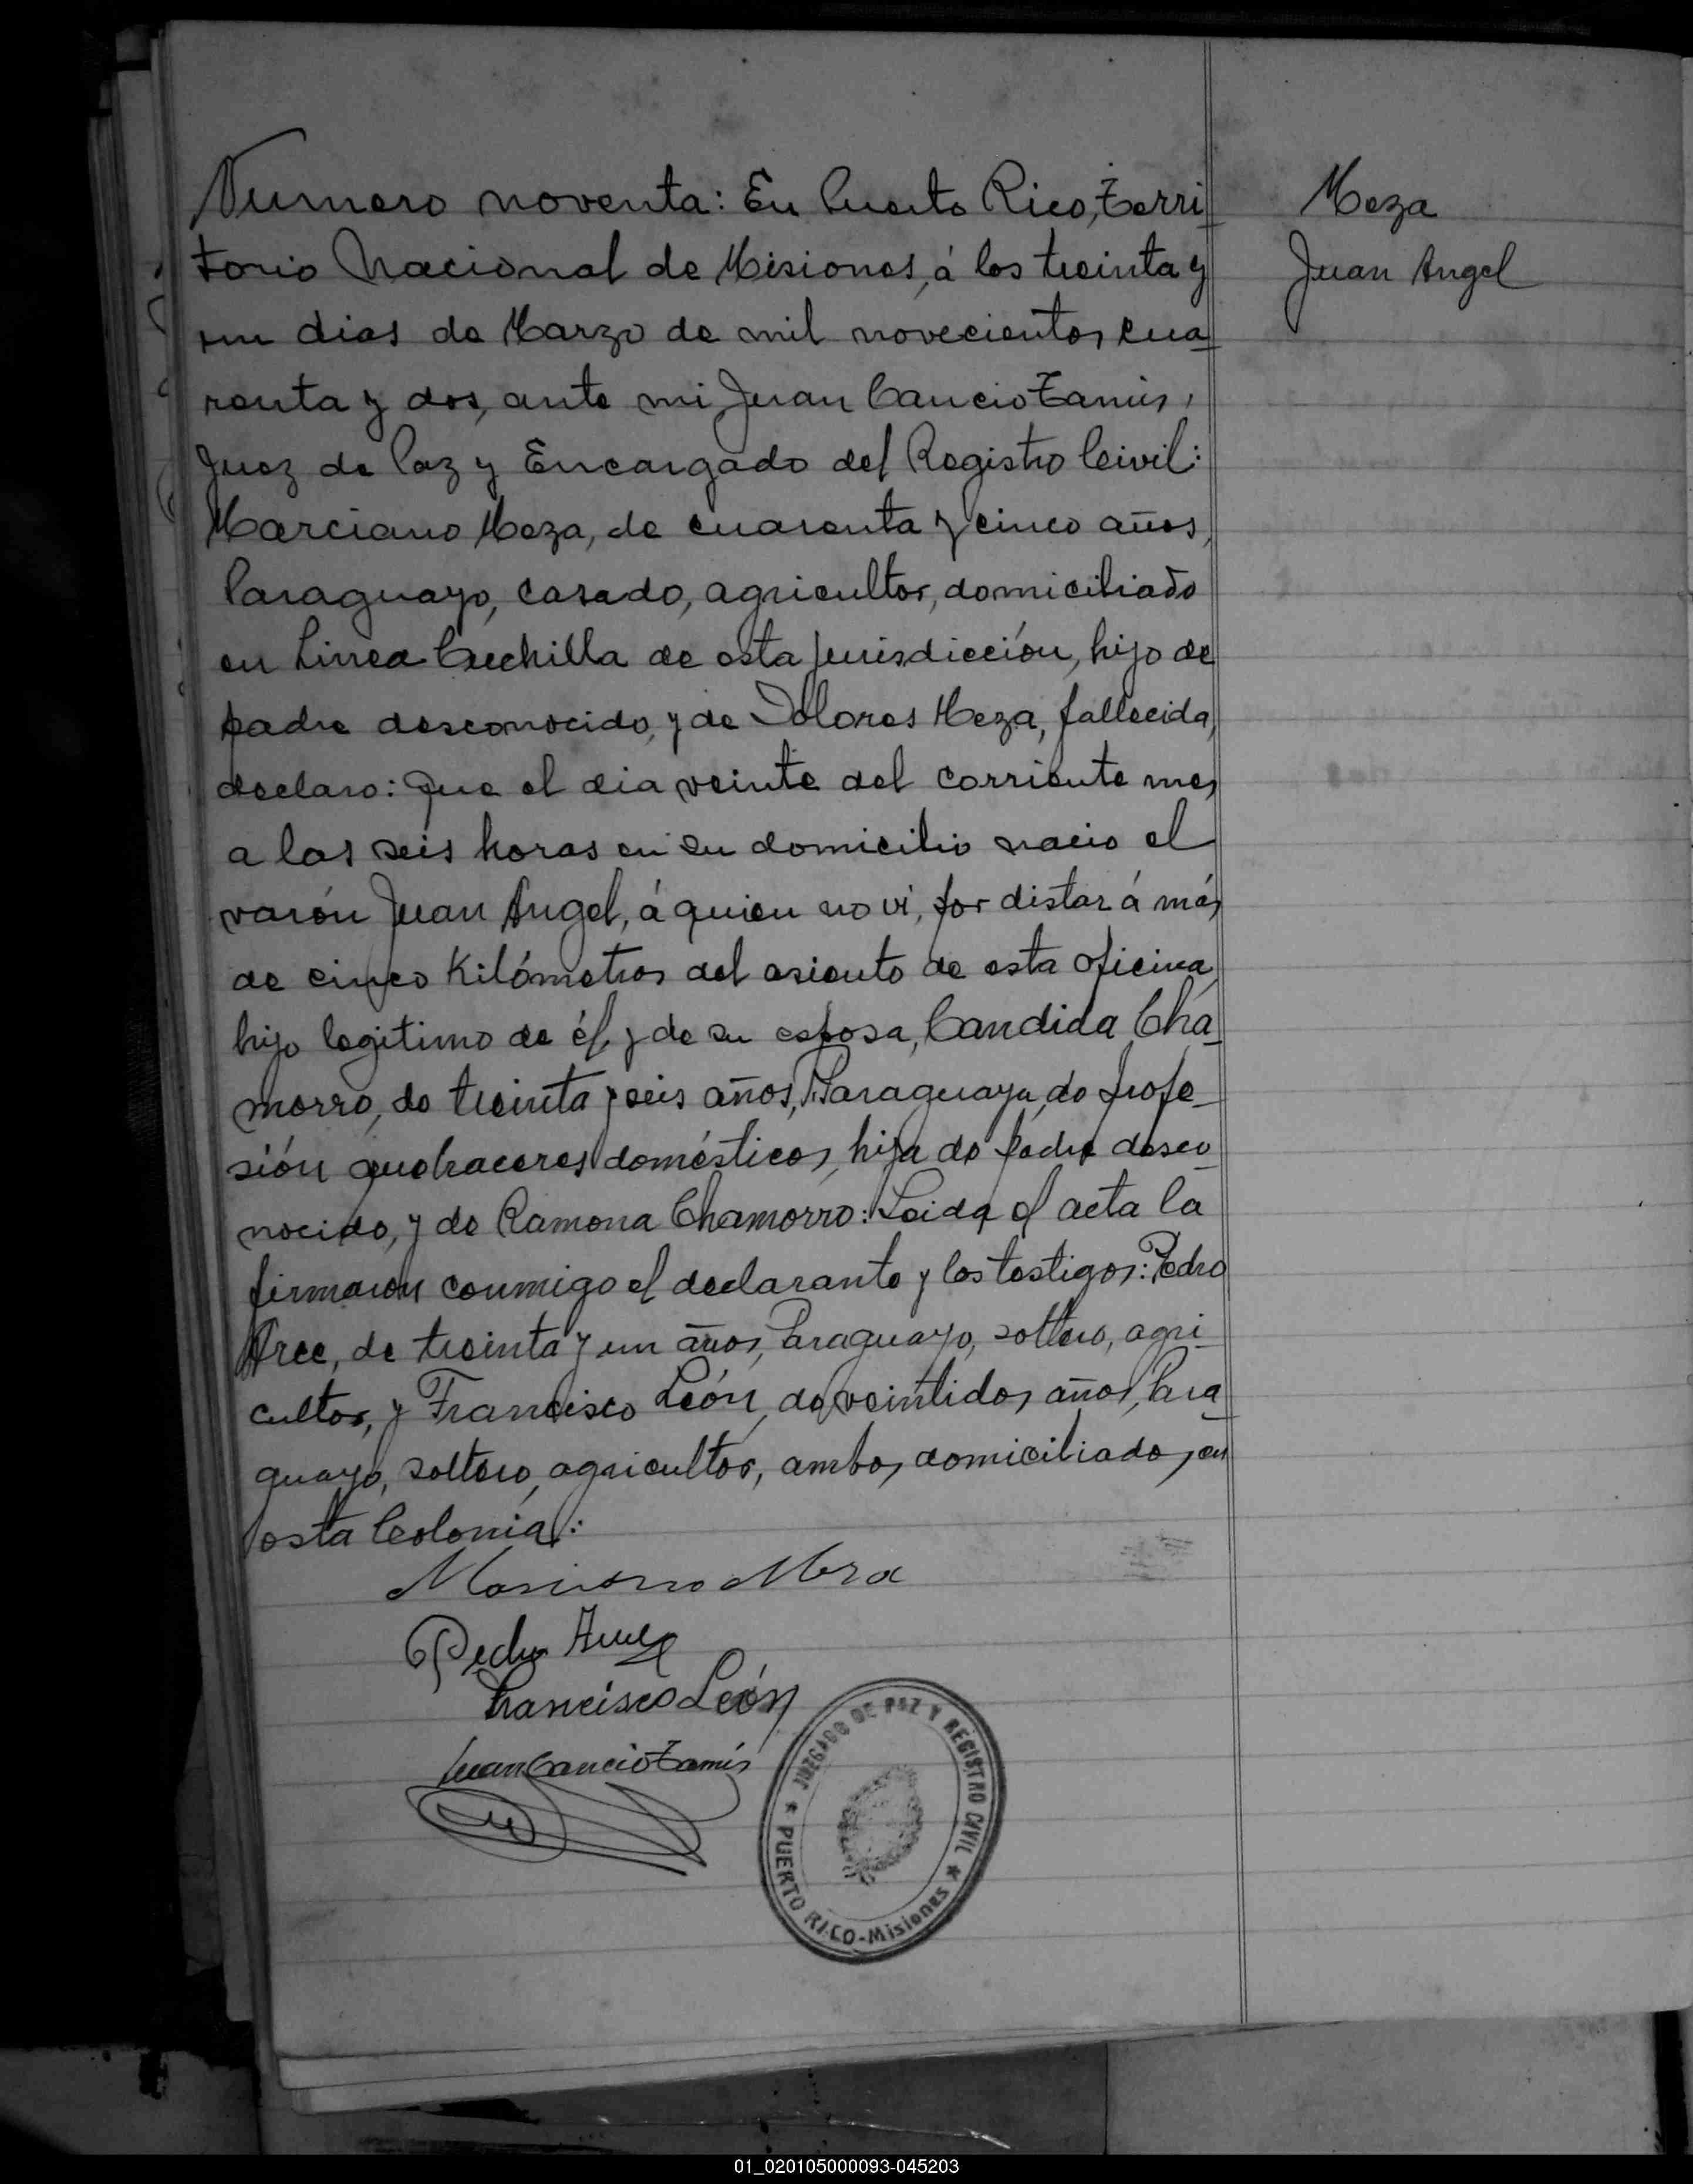 Numero noventa: En Puerto Rico, Terri-
torio Nacional de Misiones, á los treinta y
un dias de Marzo de mil novecientos cua-
renta y dos, ante mi Juan Cancio Tamis,
Juez de Paz y Encargado del Registro Civil:
Marciano Meza, de cuarenta y cinco años,
Paraguayo, casado, agricultor, domiciliado
en Linea Cuchilla de esta jurisdicción, hijo de
padre desconocido, y de Dolores Meza, fallecida,
declaro: Que el dia veinte del corriente mes,
a las seis horas en su domicilio nacio el
varón Juan Angel, á quien no vi, por distar á más
de cinco Kilómetros del asiento de esta oficina,
hijo legitimo de él, y de su esposa, Candida Cha-
morro, de treinta y seis años, Paraguaya, de profe-
sión quehaceres domésticos, hija de padre desco-
nocido, y de Ramona Chamorro: Leida el acta la
firmaron conmigo el declarante y los testigos: Pedro
Arce, de treinta y un años, Paraguayo, soltero, agri-
cultor, y Francisco León, de veintidos años, Para-
guayo, soltero, agricultor, ambos domiciliados en
esta Colonia:
Marciano Meza
Pedro Arce
Francisco León
Juan Cancio Tamis
JUZGADO DE PAZ Y REGISTRO CIVIL
★ PUERTO RICO-Misiones ★
Meza
Juan Angel
01_020105000093-045203